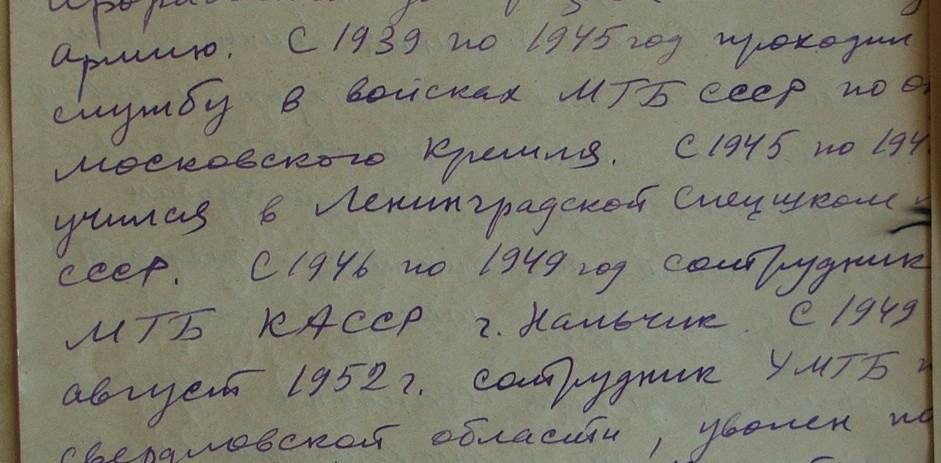 армию. С 1939 по 1945 год проходил
службу в войсках МГБ СССР по
Московского Кремля. С 1945 по 194
учился в Ленинградской спецшколе
СССР. С 1946 по 1949 год сотрудник
МГБ КАССР г. Нальчик. С 1949
август 1952 г. сотрудник УМГБ
Свердловской области, уволен по